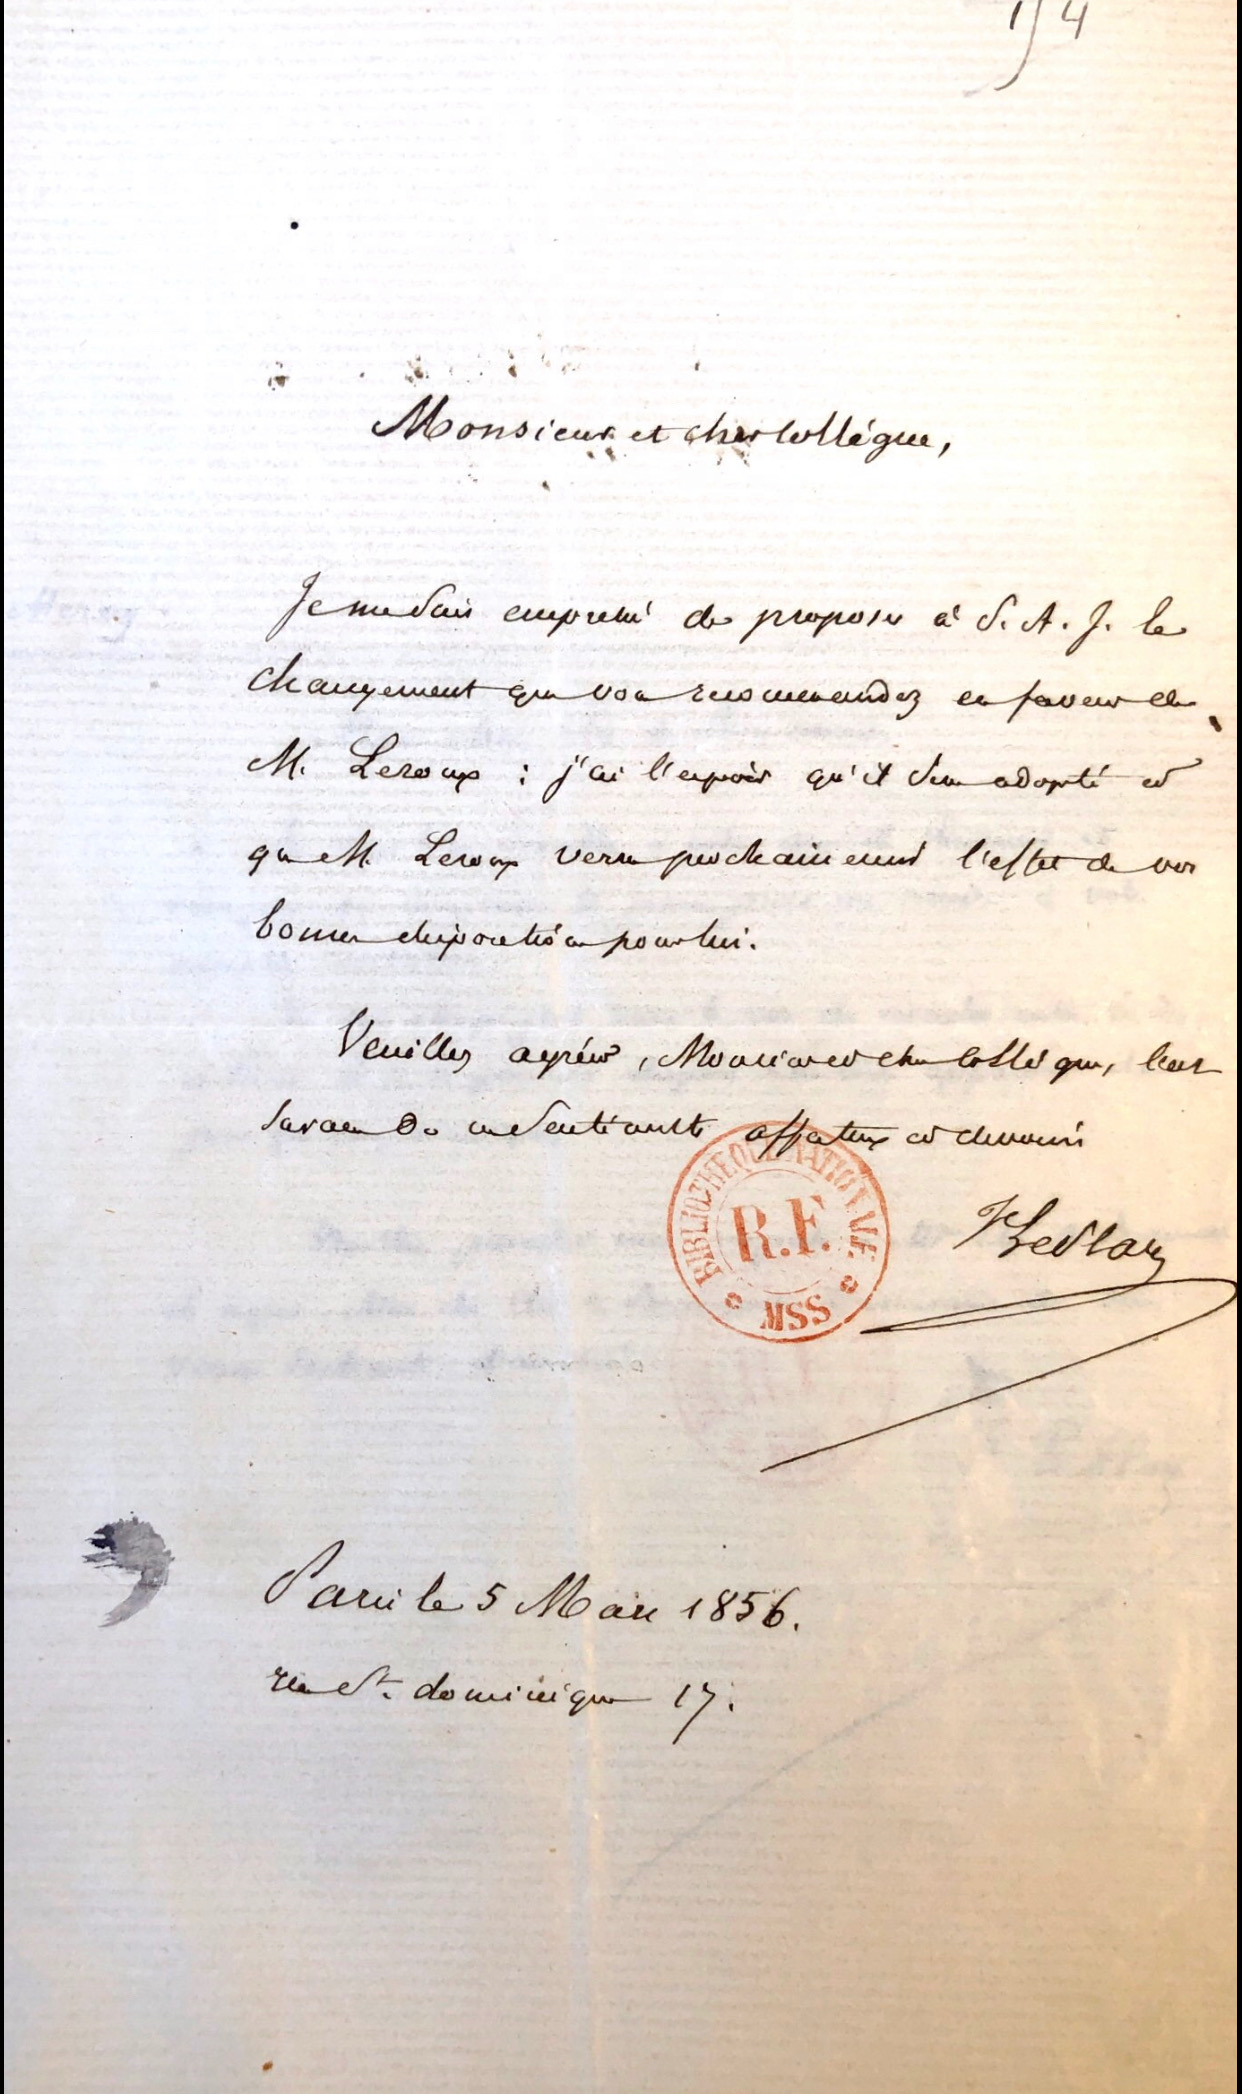 154
Monsieur et cher Collègue,
Je me suis empressé de proposer à S. A. I. le
changement que vous recommandez en faveur de
M. Leroux : j'ai l'espoir qu'il sera adopté et
que M. Leroux verra prochainement l'effet de vos
bonnes dispositions pour lui.
Veuillez agréer, Monsieur et cher Collègue,
de mes sentiments affectueux et dévoués
BIBLIOTHEQUE NATIONALE
R.F.
MSS
Paris le 5 Mars 1856.
rue St. dominique 17.